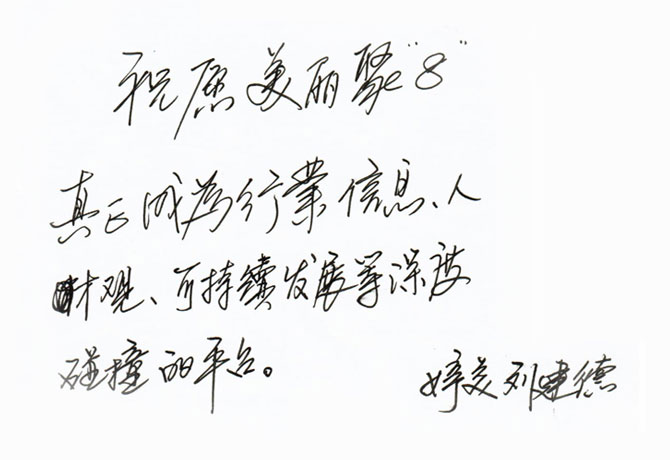 祝愿美丽聚“8”
真正成为行業信息、人
财观、可持續发展等深度
碰撞的平台。
婷美列建德